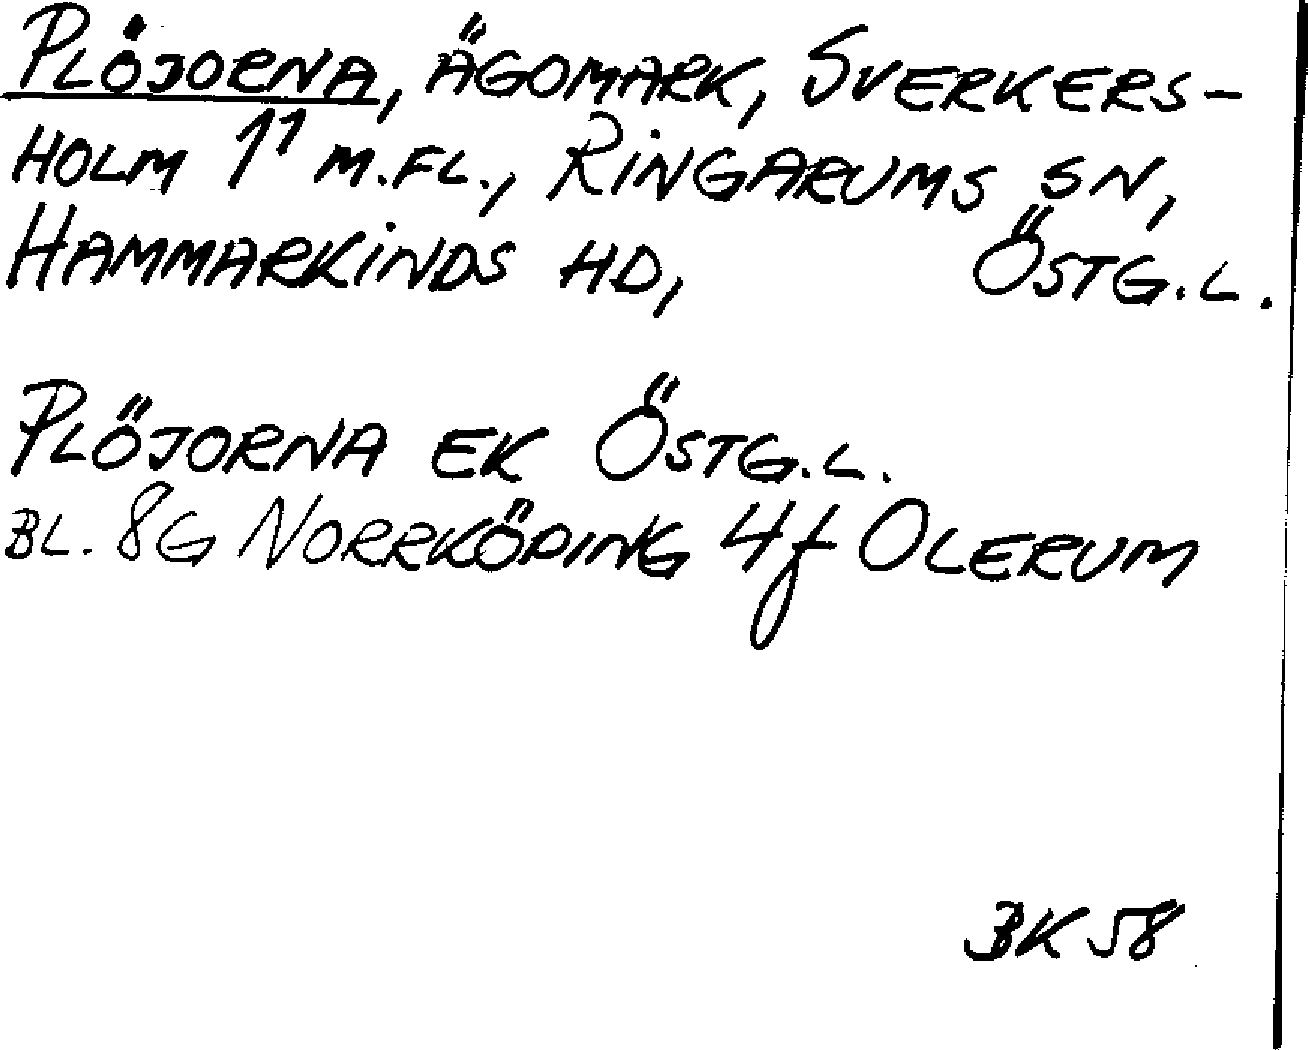 PLÖJORNA, ÄGOMARK, SVERKERS-
HOLM 1¹ M.FL., RINGARUMS SN,
HAMMARKINDS HD, ÖSTG.L.
PLÖJORNA EK ÖSTG.L.
BL. 8G NORRKÖPING 4f OLERUM
BK 58